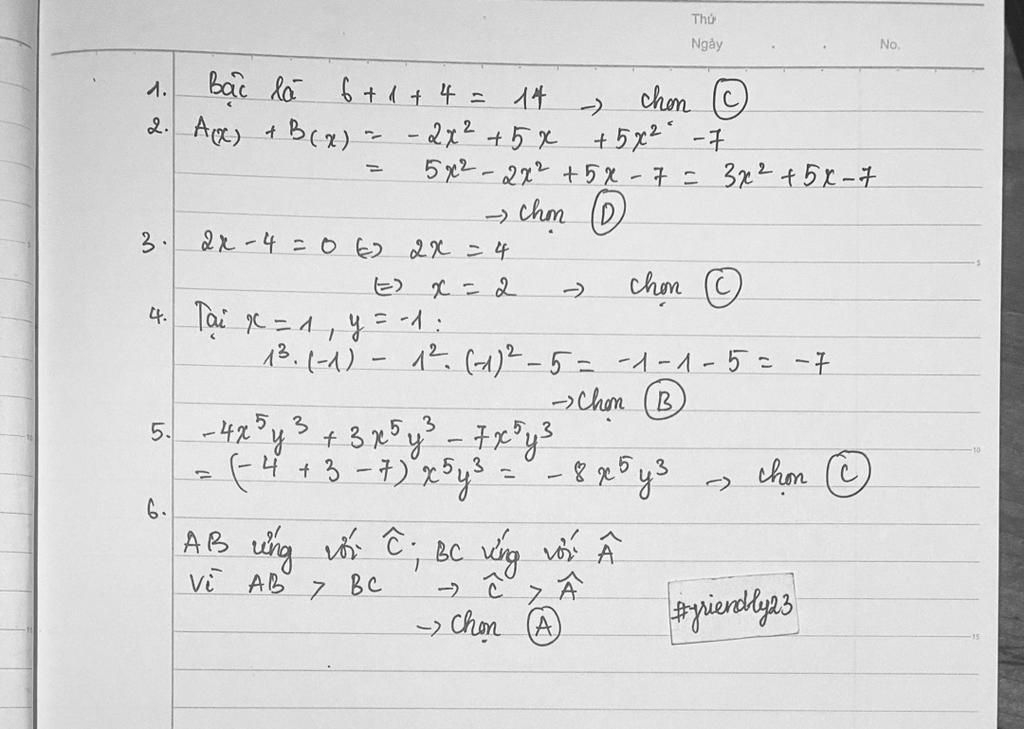 Thứ
Ngày . . No.
1. Bậc là 6 + 1 + 4 = 14 → chọn C
2. A(x) + B(x) = -2x² + 5x + 5x² - 7
= 5x² - 2x² + 5x - 7 = 3x² + 5x - 7
→ chọn D
3. 2x - 4 = 0 ⇔ 2x = 4
⇔ x = 2 → chọn C
4. Tại x = 1, y = -1 :
1³. (-1) - 1². (-1)² - 5 = -1 - 1 - 5 = -7
→ chọn B
5. -4x⁵y³ + 3x⁵y³ - 7x⁵y³
= (-4 + 3 - 7) x⁵y³ = -8x⁵y³ → chọn C
6.
AB ứng với Ĉ ; BC ứng với Â
Vì AB > BC → Ĉ > Â
→ chọn A
#friendly23
5
10
15